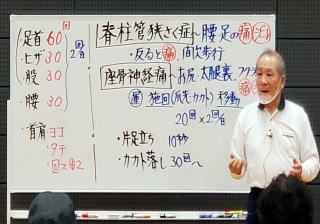 足首 60回
ヒザ 30
股 30
腰 30
2回
首肩 ヨコ
タテ
脊柱管狭さく症 腰足の痛
・反ると痛、間欠歩行
座骨神経痛 お尻、太腿裏、
施回(爪先カカト)移動
20回×2回
・片足立ち 10秒
・カカト落し 30回〜